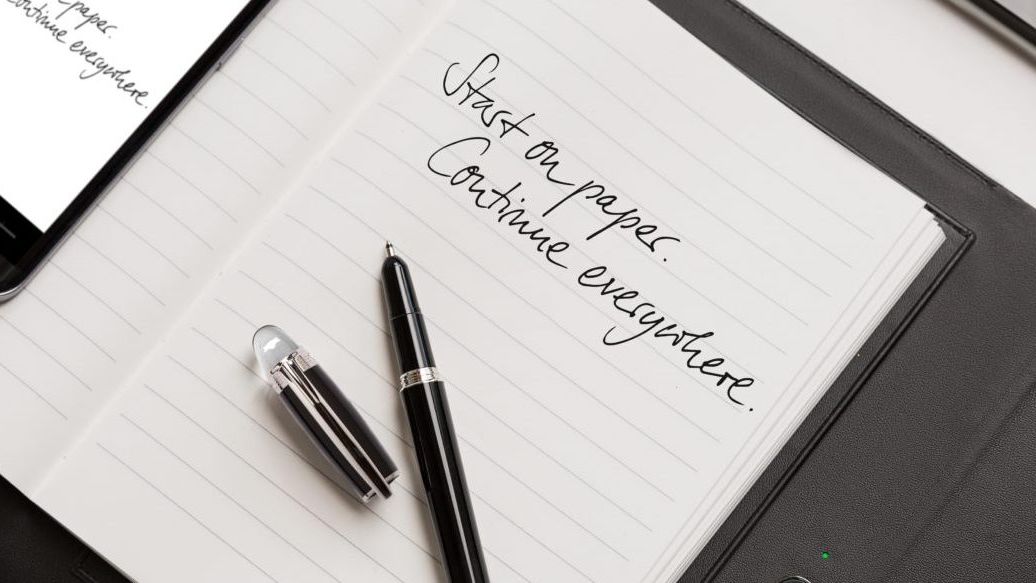 paper.
Continue everywhere.
Start on paper.
Continue everywhere.